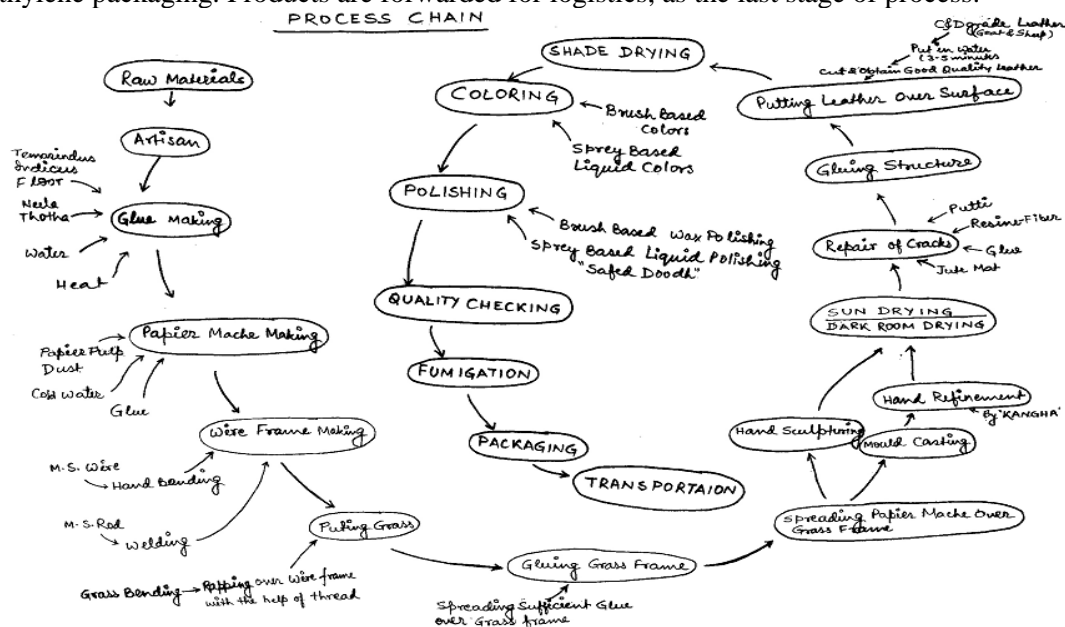 thylene packaging. Products are forwarded for logistics, as the last stage of process.
PROCESS CHAIN
Raw Materials
Artisan
Temarindus
Indicus
Floor
Neela
Thotha
Water
Heat
Glue Making
Papier Mache Making
Papier Pulp
Dust
Cold Water
Glue
Wire Frame Making
M.S. Wire
Hand Bending
M.S. Rod
Welding
Puting Grass
Grass Bending
Rapping over Wire frame
with the help of thread
Gluing Grass Frame
Spreading Sufficient Glue
over Grass frame
Spreading Papier Mache Over
Grass Frame
Hand Sculpturing
Mould Casting
Hand Refinement
By 'KANGHA'
SUN DRYING
DARK ROOM DRYING
Repair of Cracks
Putti
Resine-Fiber
Glue
Jute Mat
Gluing Structure
Putting Leather Over Surface
C&D grade Leather
(Goat & Sheep)
Put in Water
(3-5 minutes
Cut & Obtain Good Quality Leather
SHADE DRYING
COLORING
Brush Based
Colors
Sprey Based
Liquid Colors
POLISHING
Brush Based Wax Polishing
Sprey Based Liquid Polishing
"Safed Doodh"
QUALITY CHECKING
FUMIGATION
PACKAGING
TRANSPORTAION